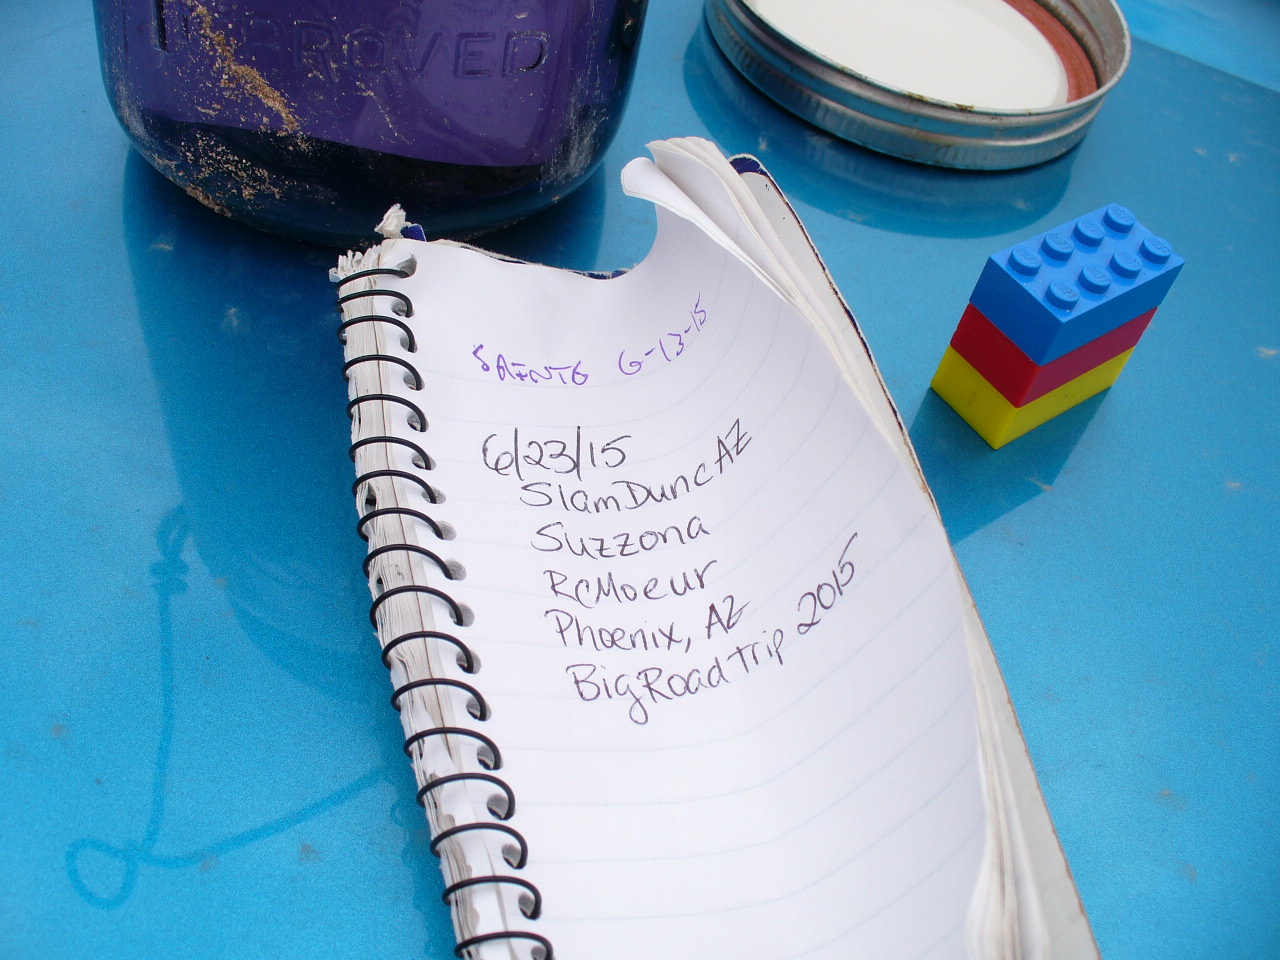 IMPROVED
SAINTG 6-13-15
6/23/15
SlamDuncAZ
Suzzona
RCMoeur
Phoenix, AZ
BigRoadtrip 2015